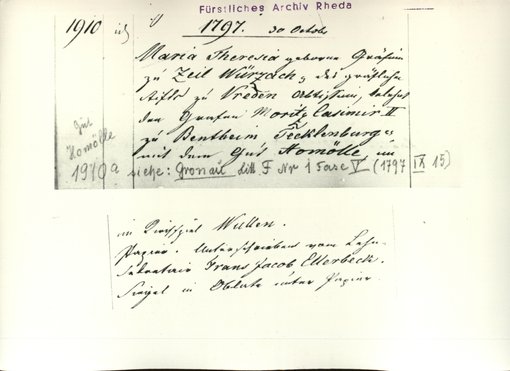 Fürstliches Archiv Rheda
1910 1797. 30 Octobr
Maria Theresia geborne Gräfinn
zu Zeil Würzach, des gräflichen
Stifts zu Vreden Äbtissinn, belehnt
den Grafen Moritz Casimir II
zu Bentheim Tecklenburg
mit dem Gut Homölle im
Gut
Homölle
1910a siehe: Gronau Litt F Nr 1 Fasc V (1797 IX 15)
im Kirchspiel Wullen.
Papier. Unterschrieben vom Lehn-
Sekretair Franz Jacob Ellerbeck.
Siegel in Oblate unter Papier.